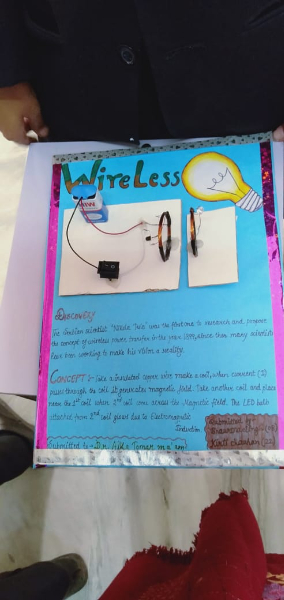 WireLess
Discovery
The Serbian scientist "Nikola Tesla" was the first one to research and propose
the concept of wireless power transfer in the year 1899, since than many scientists
have been working to make his vision a reality.
CONCEPT :- Take a insulated copper wire make a coil, when current (I)
pass through the coil it generates magnetic field. Take another coil and place
near the 1st coil when 2nd coil come across the Magnetic field. The LED bulb
attached from 2nd coil glows due to Electromagnetic
Induction
Submitted by
Submitted to :- Dr. Tomar ma'am